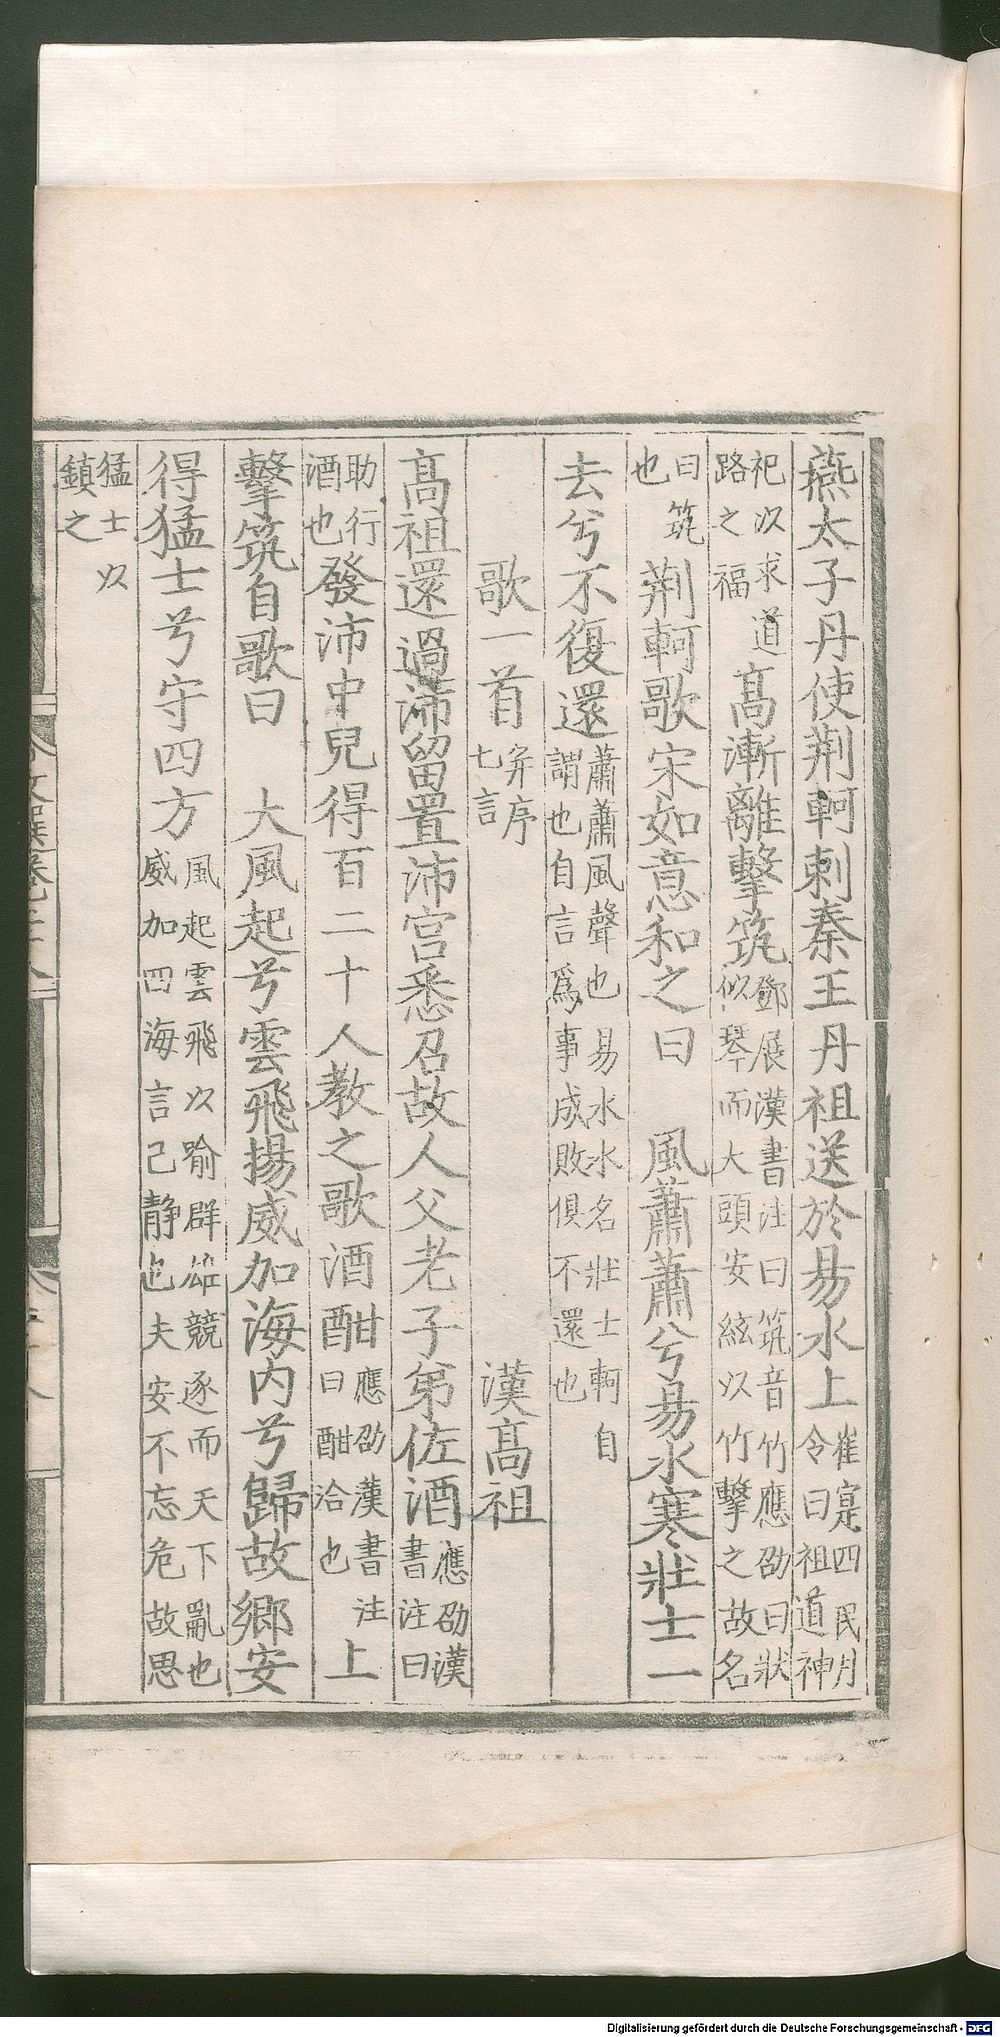 燕太子丹使荆軻刺秦王丹祖送於易水上崔寔四民月令曰祖道神
祀以求道路之福高漸離擊筑鄧展漢書注曰筑音竹應劭曰狀似琴而大頭安絃以竹擊之故名
曰筑也荆軻歌宋如意和之曰　風蕭蕭兮易水寒壯士一
去兮不復還蕭蕭風聲也易水水名壯士軻自謂也自言爲事成敗俱不還也
歌一首并序七言　漢髙祖
髙祖還過沛留置沛宫悉召故人父老子弟佐酒應劭漢書注曰
助行酒也發沛中兒得百二十人教之歌酒酣應劭漢書注曰酣洽也上
擊筑自歌曰　大風起兮雲飛揚威加海内兮歸故鄉安
得猛士兮守四方風起雲飛以喻群雄競逐而天下亂也威加四海言己靜也夫安不忘危故思
猛士以鎮之
Digitalisierung gefördert durch die Deutsche Forschungsgemeinschaft - DFG